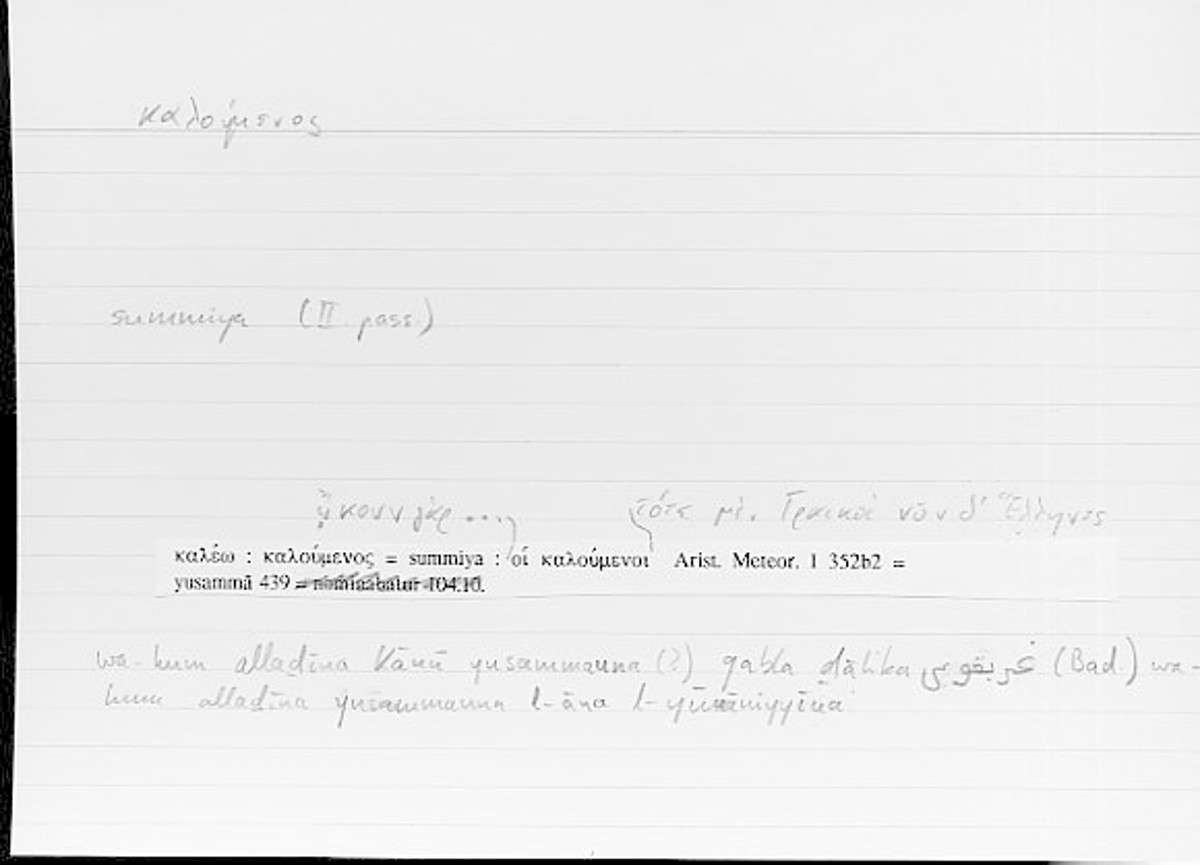 καλούμενος
summiya (II pass.)
ᾤκουν γὰρ .... τότε μὲν Γραικοὶ νῦν δ' Ἕλληνες
καλέω : καλούμενος = summiya : οἱ καλούμενοι Arist. Meteor. I 352b2 =
yusammā 439 = nominabatur 104.10.
wa-hum allaḏīna kānū yusammauna (?) qabla ḏālika غريقوبى (Bad.) wa-
hum allaḏīna yusammauna l-āna l-yūnāniyyīna